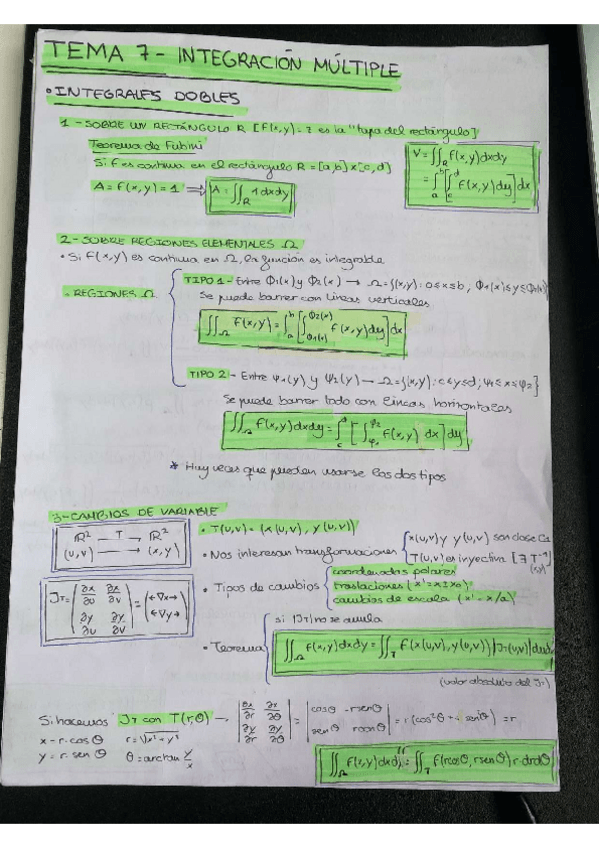 TEMA 7 - INTEGRACIÓN MÚLTIPLE
• INTEGRALES DOBLES
1 - SOBRE UN RECTÁNGULO R [f(x,y) = z es la "tapa del rectángulo]
Teorema de Fubini
Si f es continua en el rectángulo R = [a,b] x [c,d]
A = f(x,y) = 1 ⟹ A = ∬_R 1 dxdy
V = ∬_R f(x,y) dxdy
= ∫_a^b [∫_c^d f(x,y) dy] dx
2 - SOBRE REGIONES ELEMENTALES Ω
• Si f(x,y) es continua en Ω, la función es integrable
- REGIONES Ω
TIPO 1 - Entre Φ1(x) y Φ2(x) → Ω = {(x,y) : a ≤ x ≤ b, Φ1(x) ≤ y ≤ Φ2(x)}
Se puede barrer con líneas verticales
∬_Ω f(x,y) = ∫_a^b [∫_Φ1(x)^Φ2(x) f(x,y) dy] dx
TIPO 2 - Entre φ1(y) y φ2(y) → Ω = {(x,y) : c ≤ y ≤ d ; φ1 ≤ x ≤ φ2}
Se puede barrer todo con líneas horizontales
∬_Ω f(x,y) dxdy = ∫_c^d [∫_φ1^φ2 f(x,y) dx] dy
* Hay veces que pueden usarse los dos tipos
3 - CAMBIOS DE VARIABLE
ℝ² —T→ ℝ²
(u,v) ⟶ (x,y)
• T(u,v) = (x(u,v), y(u,v))
• Nos interesan transformaciones { x(u,v) y y(u,v) son clase C1
T(u,v) es inyectiva [∃ T⁻¹(x,y)]
J_T = (∂x/∂u ∂x/∂v ; ∂y/∂u ∂y/∂v) = (←∇x→ ; ←∇y→)
• Tipos de cambios { coordenadas polares
traslaciones (x' = x ± x0)
cambios de escala (x' = x/a)
• Teorema { si |J_T| no se anula
∬_Ω f(x,y) dxdy = ∬_T f(x(u,v), y(u,v)) |J_T(u,v)| dudv
(valor absoluto del J_T)
Si hacemos J_T con T(r,θ) → |∂x/∂r ∂x/∂θ ; ∂y/∂r ∂y/∂θ| = |cosθ -rsenθ ; senθ rcosθ| = r(cos²θ + sen²θ) = r
x = r·cosθ r = √(x² + y²)
y = r·senθ θ = arctan y/x
∬_Ω f(x,y) dxdy = ∬_T f(rcosθ, rsenθ) r·drdθ